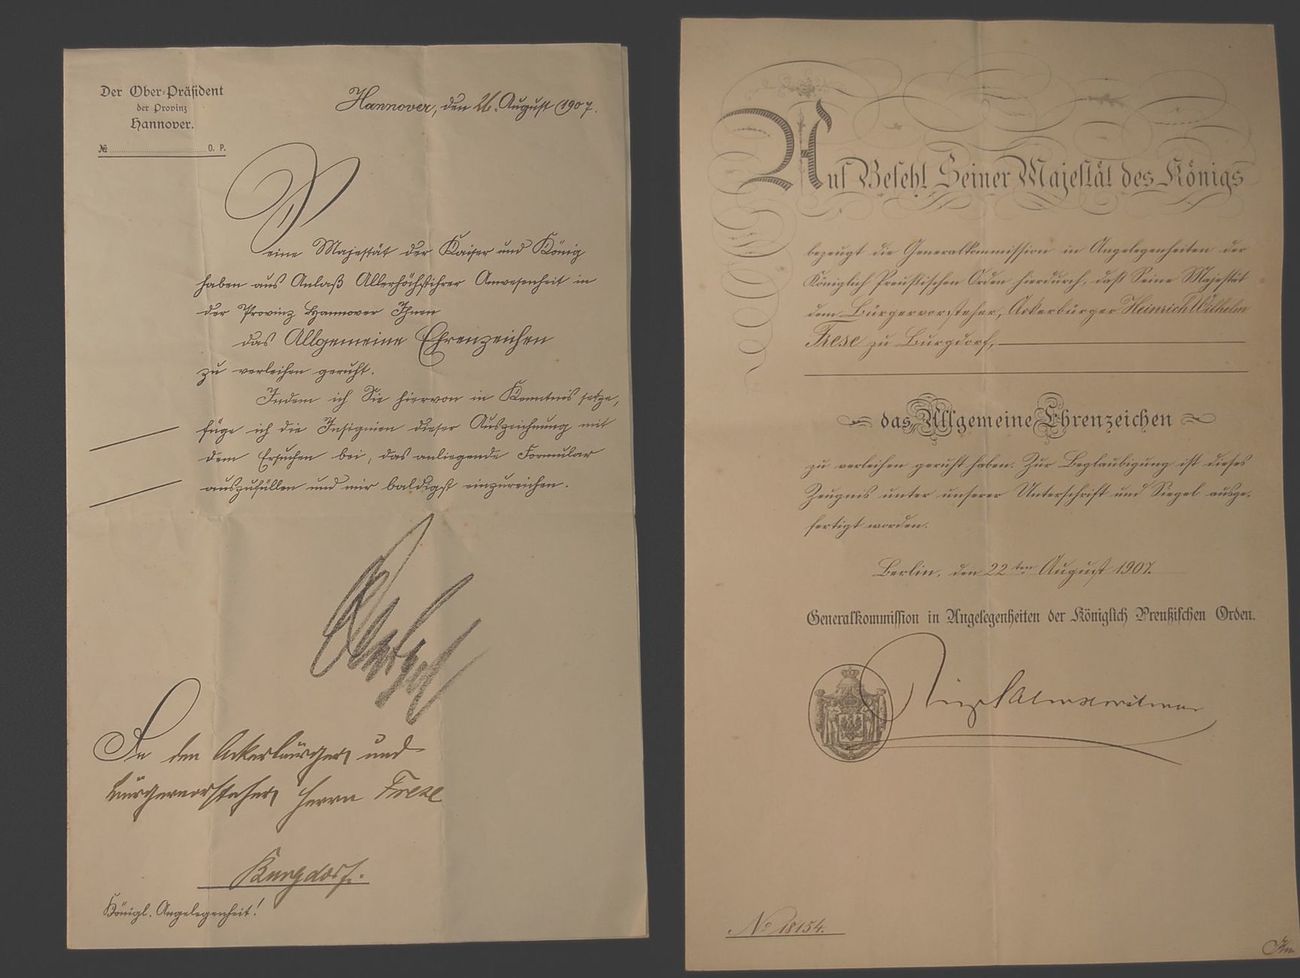 Der Ober-Präsident
der Provinz
Hannover.
№ O. P.
Hannover, den 26. August 1907.
Seine Majestät der Kaiser und König
haben aus Anlaß Allerhöchstihrer Anwesenheit in
der Provinz Hannover Ihnen
das Allgemeine Ehrenzeichen
zu verleihen geruht.
Indem ich Sie hiervon in Kenntnis setze,
füge ich die Insignien dieser Auszeichnung mit
dem Ersuchen bei, das anliegende Formular
auszufüllen und mir baldigst einzureichen.
An den Ackerbürger und
Bürgervorsteher Herrn Frese
Burgdorf.
Königl. Angelegenheit!
Auf Befehl Seiner Majestät des Königs
bezeugt die Generalkommission in Angelegenheiten der
Königlich Preußischen Orden hierdurch, daß Seine Majestät
dem Bürgervorsteher, Ackerbürger Heinrich Wilhelm
Frese zu Burgdorf,
das Allgemeine Ehrenzeichen
zu verleihen geruht haben. Zur Beglaubigung ist dieses
Zeugnis unter unserer Unterschrift und Siegel ausge-
fertigt worden.
Berlin, den 22ten August 1907.
Generalkommission in Angelegenheiten der Königlich Preußischen Orden.
No 18154.